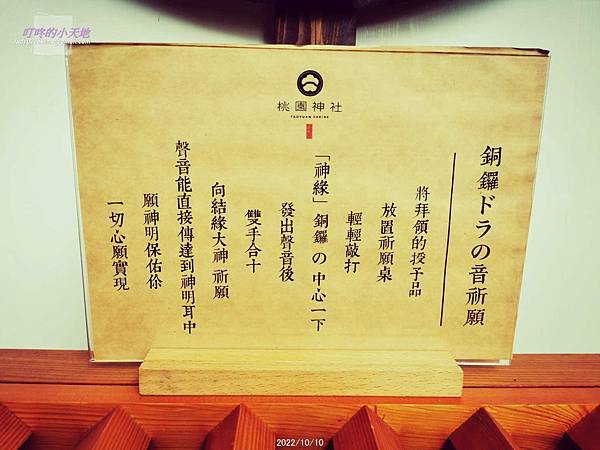 叮咚的小天地
桃園神社
TAOYUAN SHRINE
銅鑼ドラの音祈願
將拜領的授予品
放置祈願桌
輕輕敲打
「神緣」銅鑼の中心一下
發出聲音後
雙手合十
向結緣大神祈願
聲音能直接傳達到神明耳中
願神明保佑你
一切心願實現
2022/10/10